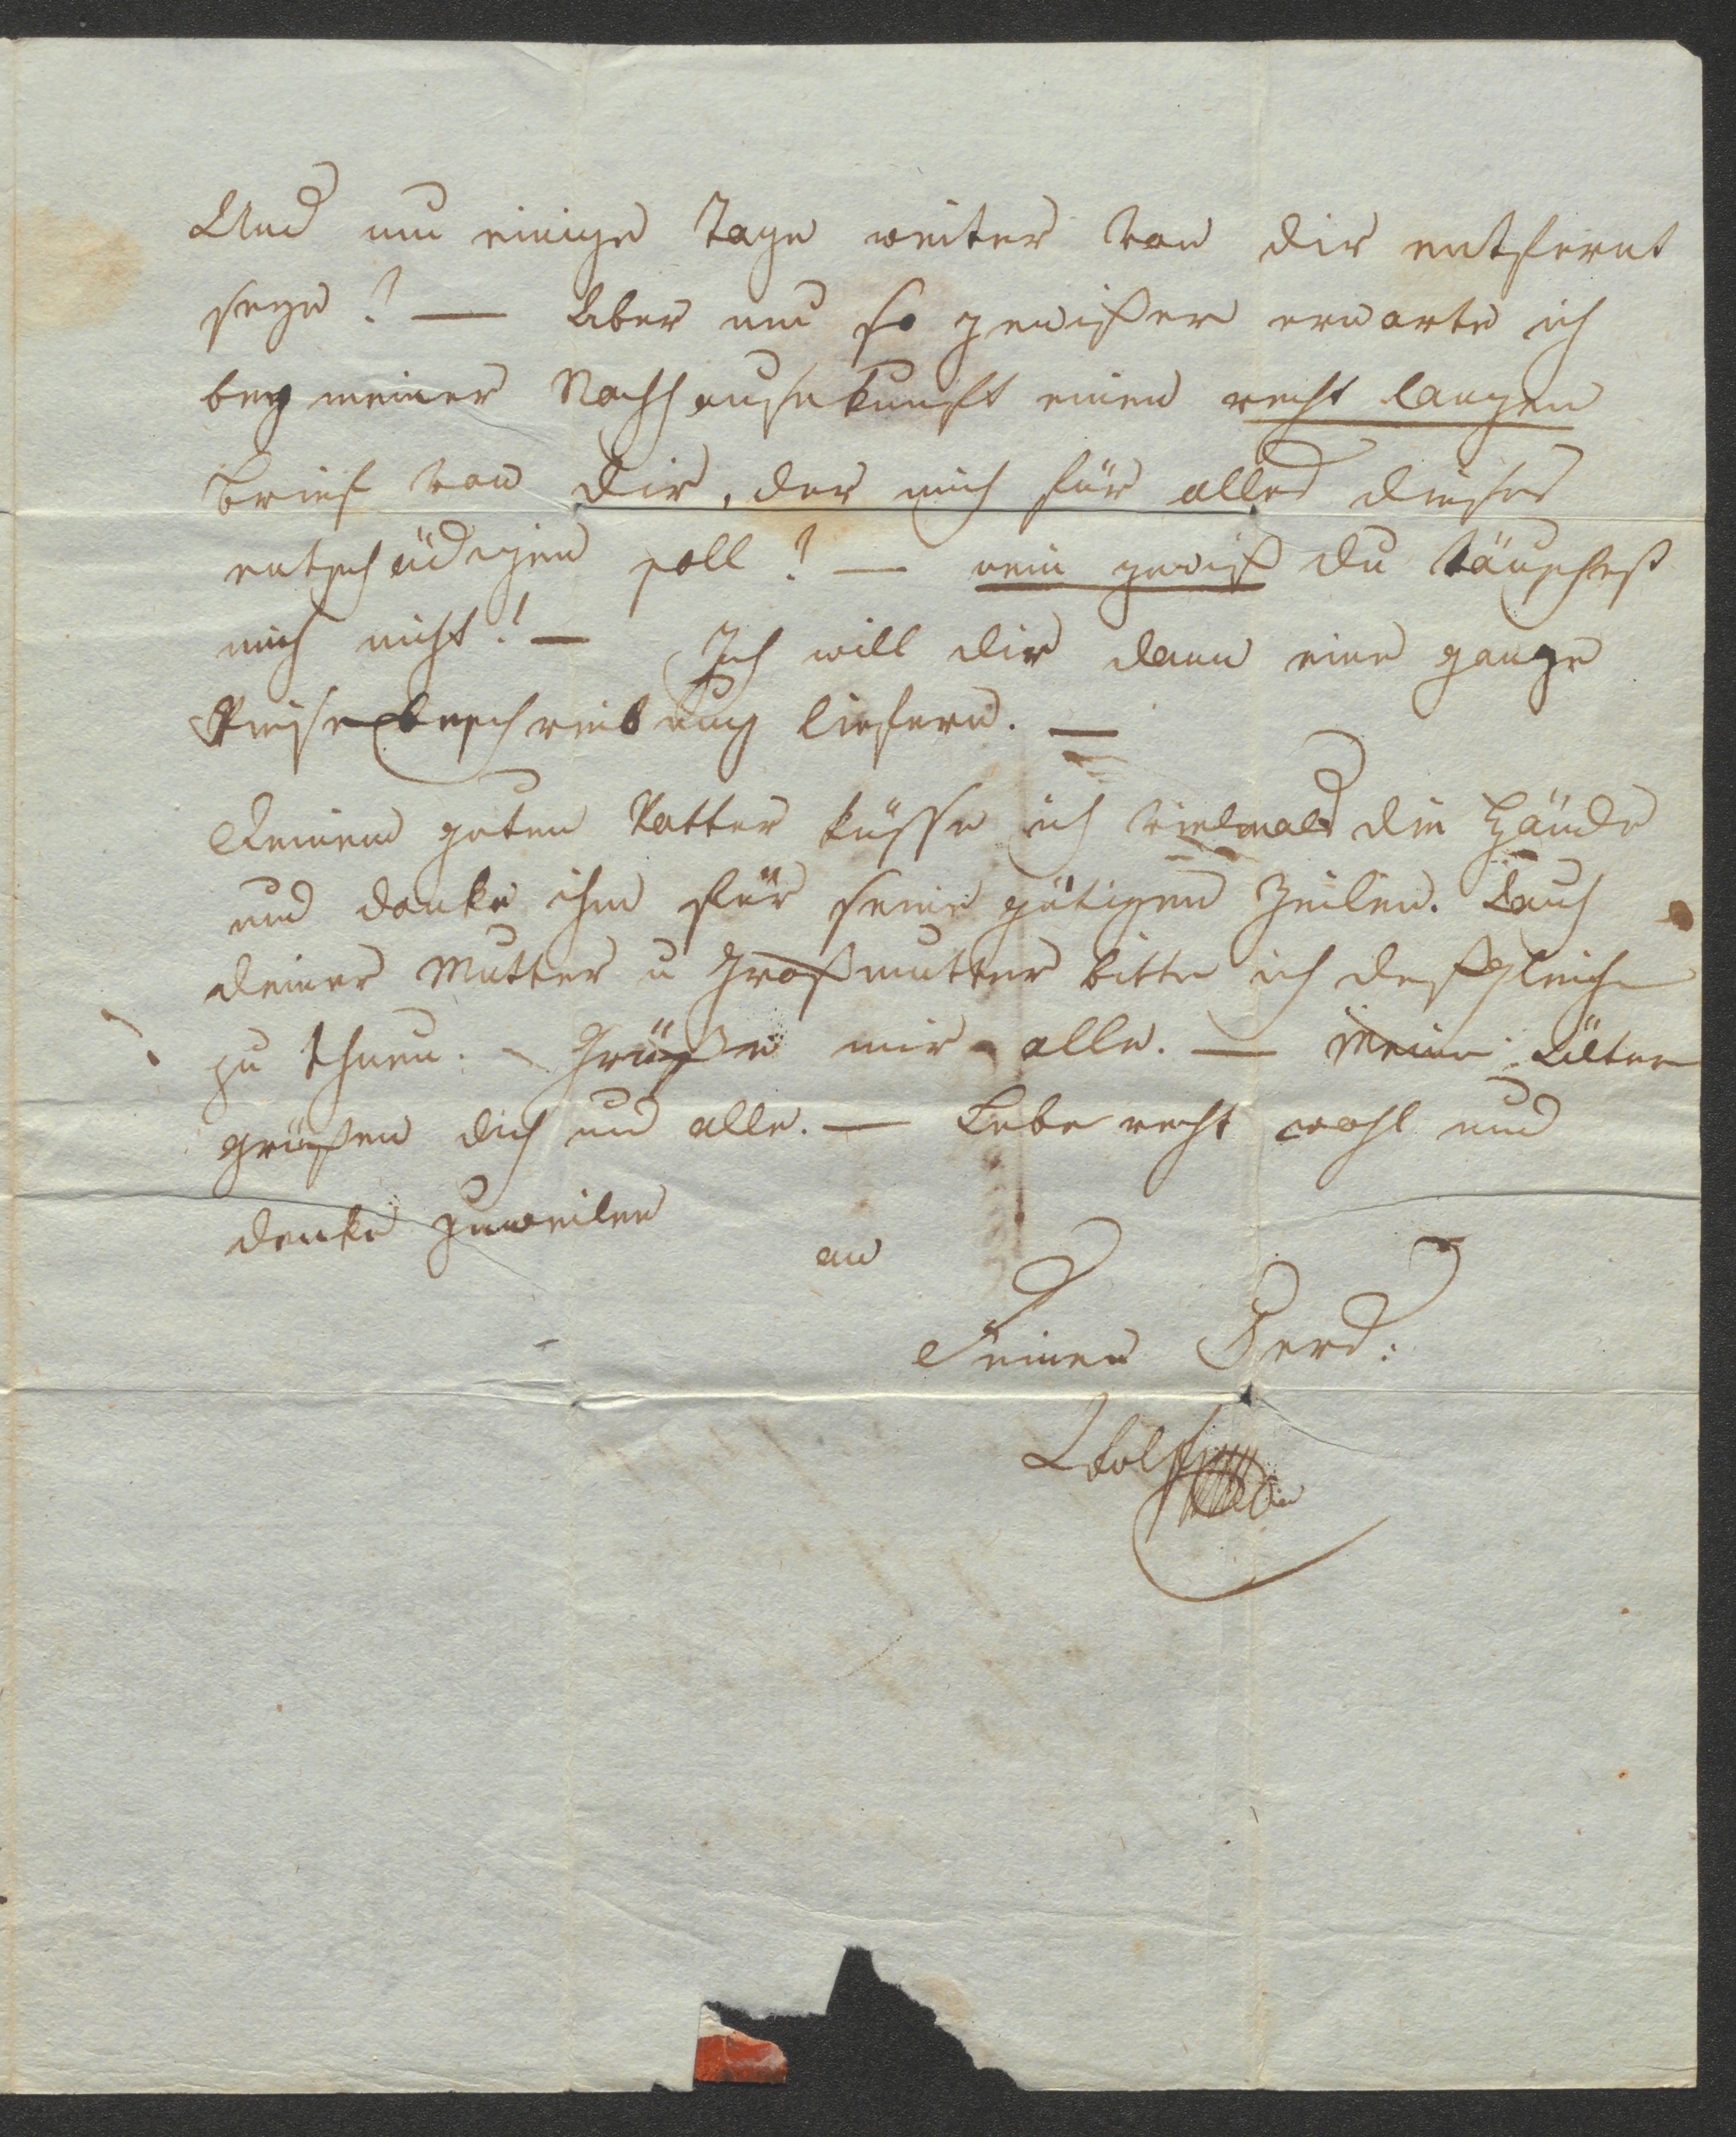 Und um einige Tage weiter von dir entfernt
seyn? — Aber um so gewißer erwarte ich
bey meiner Nachhausekunft einen recht langen
Brief von dir, der mich für alles dieses
entschädigen soll? — nein gewiß du täuschest
mich nicht! — Ich will dir dann eine ganze
Reisebeschreibung liefern. —
Deinem guten Vatter küsse ich vielmals die Hände
und danke ihm für seine gütigen Zeilen. Auch
deiner Mutter u Großmutter bitte ich deßgleichen
zu thuen. Grüße mir alle. — Meine Ältern
grüßen dich und alle. — Lebe recht wohl und
denke zuweilen
an
Deinen Ferd: